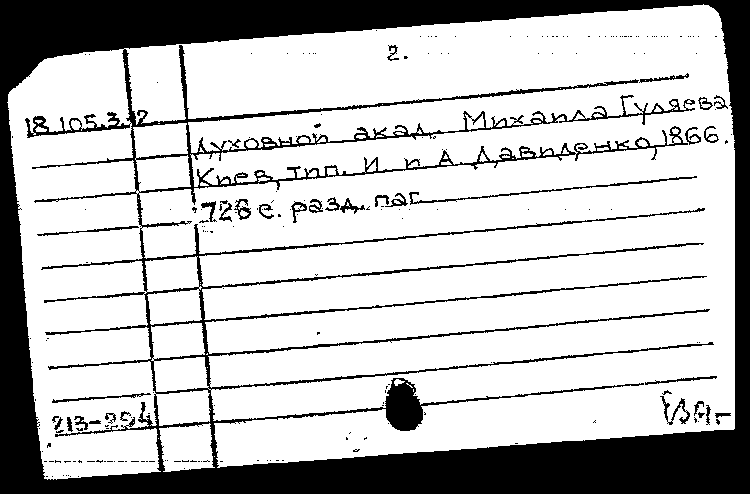 2.
18.105.3.12
духовной акад. Михаила Гуляева
Киев, тип. И. и А. Давиденко, 1866.
726 с. разд. паг.
213-254